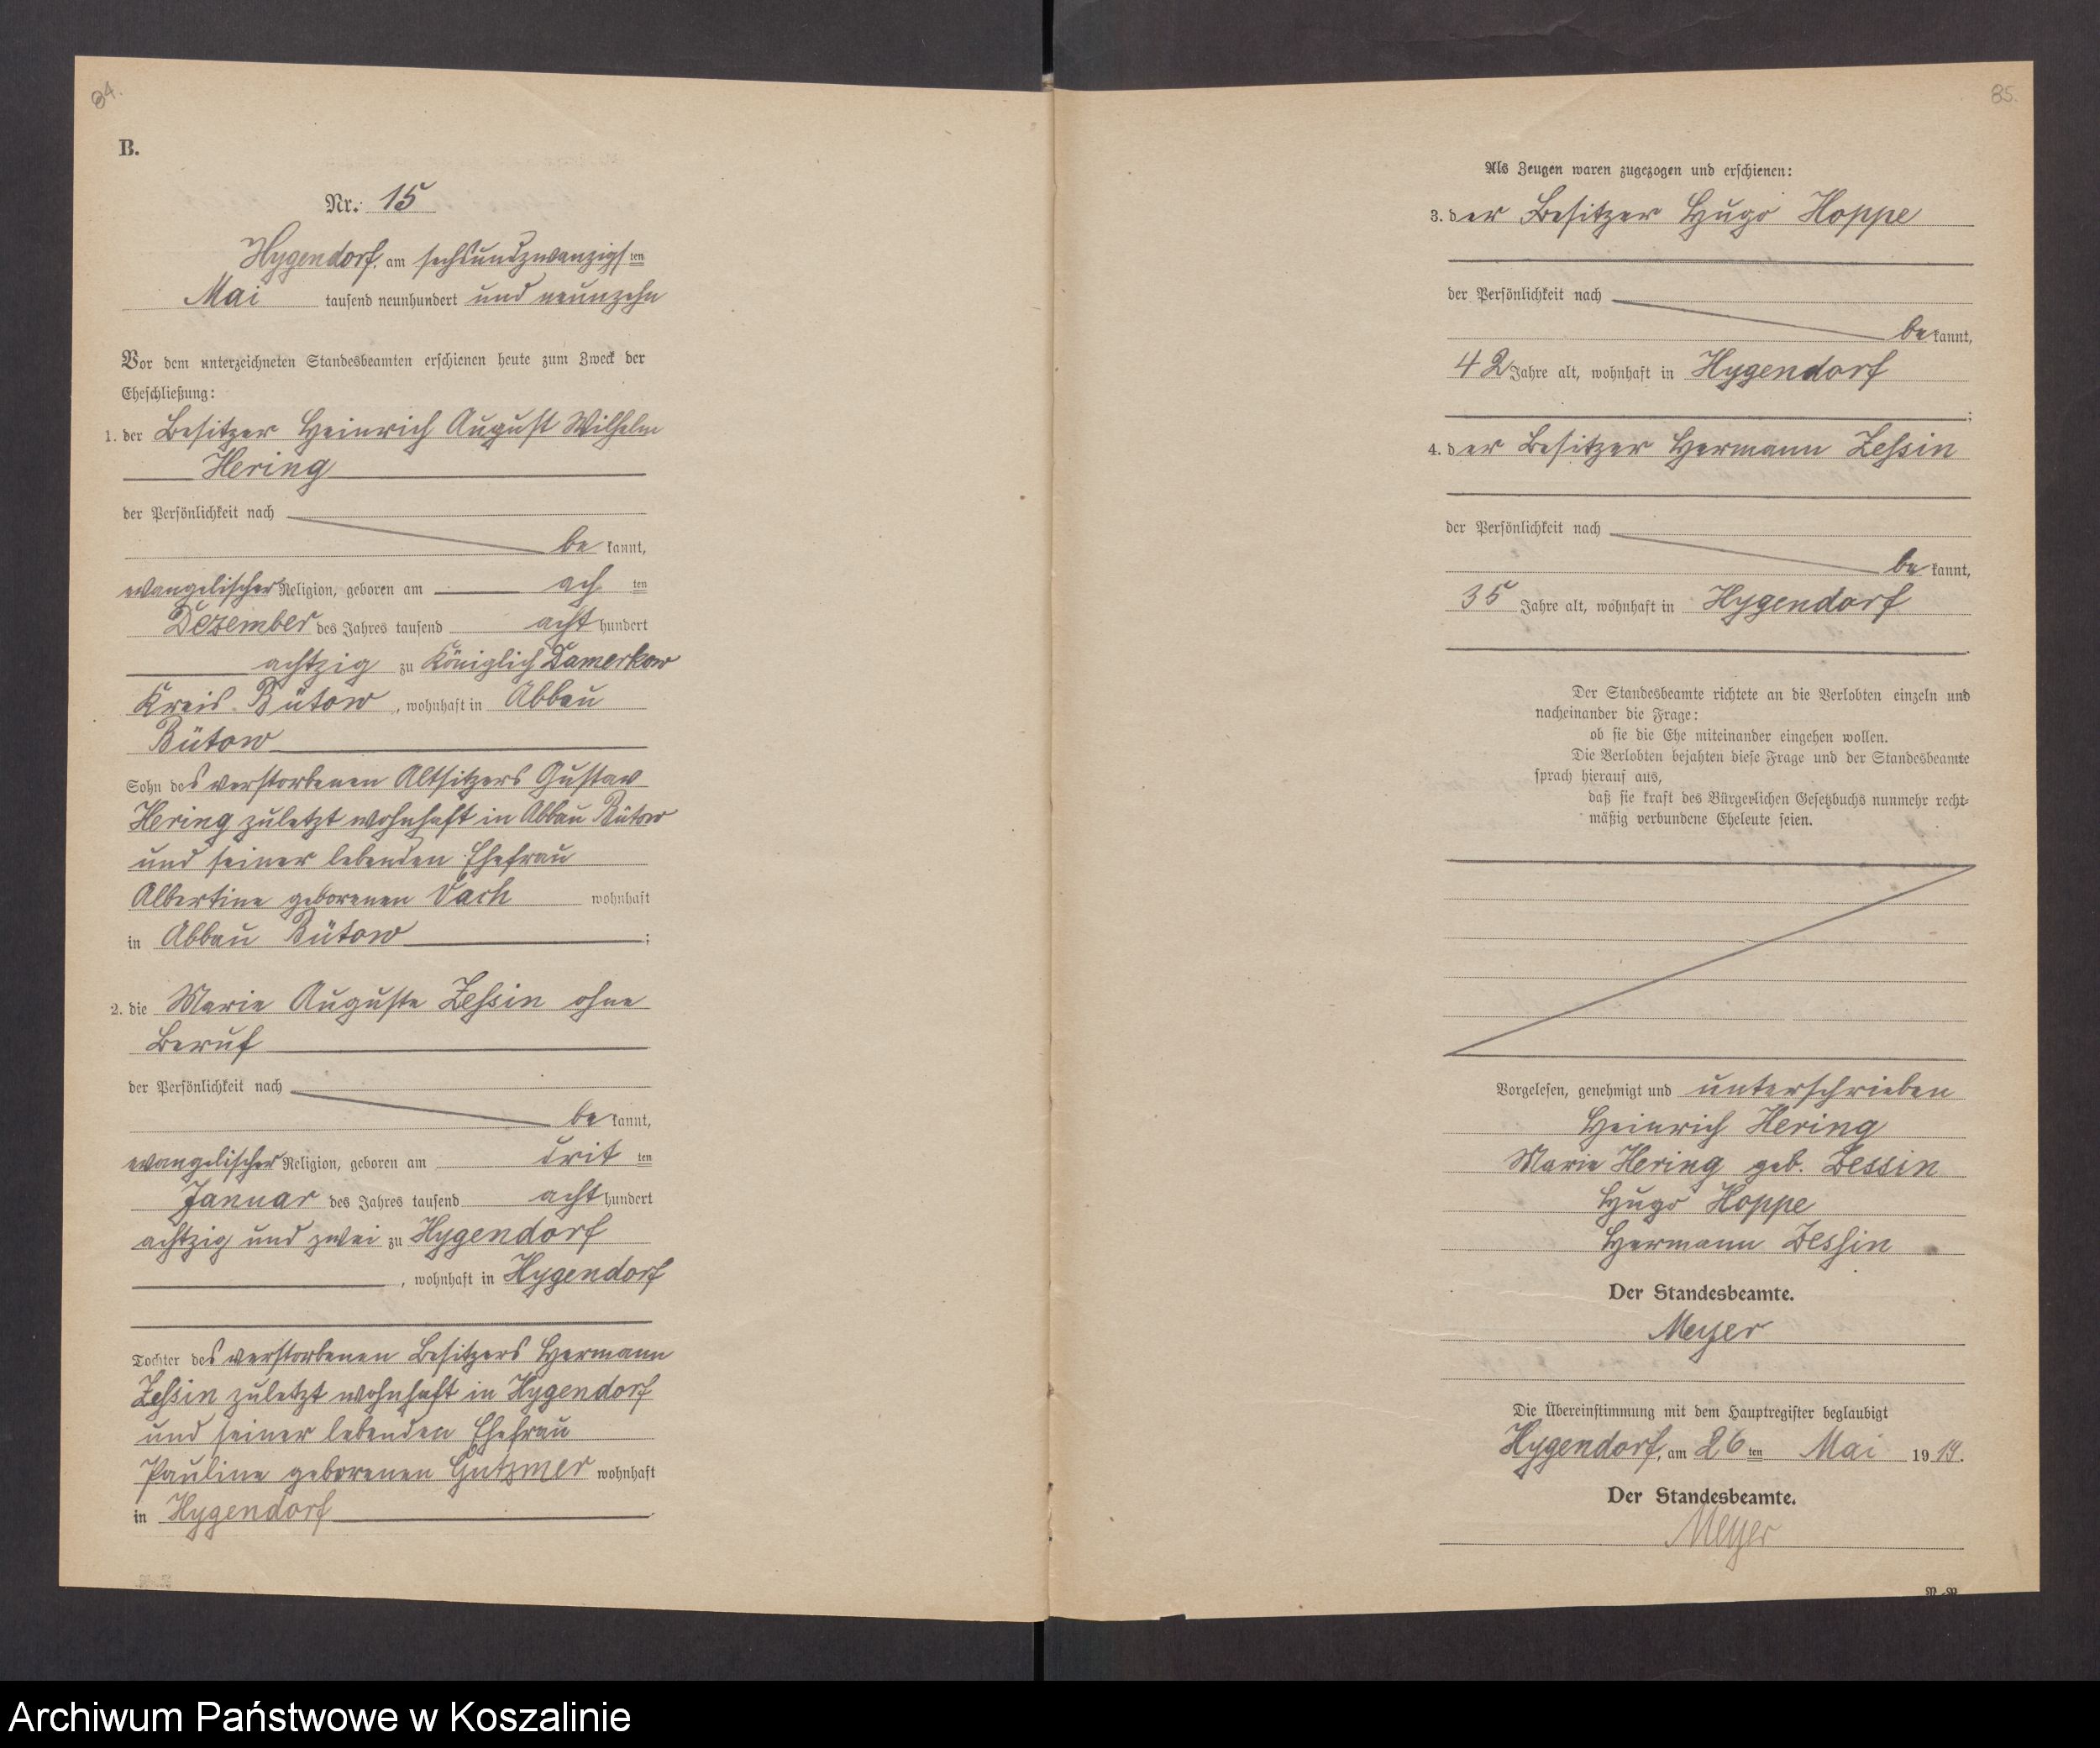 84.
B.
Nr. 15
Hygendorf, am sechsundzwanzigsten
Mai tausend neunhundert und neunzehn
Vor dem unterzeichneten Standesbeamten erschienen heute zum Zweck der
Eheschließung:
1. der Besitzer Heinrich August Wilhelm
Hering
der Persönlichkeit nach
bekannt,
evangelischer Religion, geboren am achten
Dezember des Jahres tausend achthundert
achtzig zu Königlich Damerkow
Kreis Bütow, wohnhaft in Abbau
Bütow
Sohn des verstorbenen Altsitzers Gustav
Hering zuletzt wohnhaft in Abbau Bütow
und seiner lebenden Ehefrau
Albertine geborenen wohnhaft
in Abbau Bütow;
2. die Marie Auguste Zessin ohne
Beruf
der Persönlichkeit nach
bekannt,
evangelischer Religion, geboren am dritten
Januar des Jahres tausend achthundert
achtzig und zwei zu Hygendorf
, wohnhaft in Hygendorf
Tochter des verstorbenen Besitzers Hermann
Zessin zuletzt wohnhaft in Hygendorf
und seiner lebenden Ehefrau
Pauline geborenen Gutzmer wohnhaft
in Hygendorf
85.
Als Zeugen waren zugezogen und erschienen:
3. der Besitzer Hugo Hoppe
der Persönlichkeit nach
bekannt,
42 Jahre alt, wohnhaft in Hygendorf
;
4. der Besitzer Hermann Zessin
der Persönlichkeit nach
bekannt,
35 Jahre alt, wohnhaft in Hygendorf
Der Standesbeamte richtete an die Verlobten einzeln und
nacheinander die Frage:
ob sie die Ehe miteinander eingehen wollen.
Die Verlobten bejahten diese Frage und der Standesbeamte
sprach hierauf aus,
daß sie kraft des Bürgerlichen Gesetzbuchs nunmehr recht-
mäßig verbundene Eheleute seien.
Vorgelesen, genehmigt und unterschrieben
Heinrich Hering
Marie Hering geb. Zessin
Hugo Hoppe
Hermann Zessin
Der Standesbeamte.
Meyer
Die Übereinstimmung mit dem Hauptregister beglaubigt
Hygendorf, am 26ten Mai 1919.
Der Standesbeamte.
Meyer
Archiwum Państwowe w Koszalinie